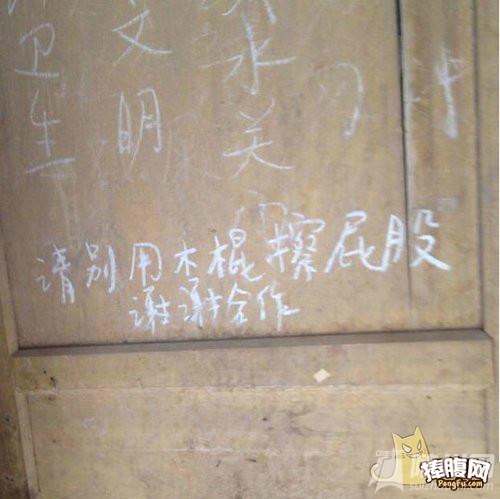 卫生
文明
水关
请别用木棍擦屁股
谢谢合作
捧腹网
PengFu.com